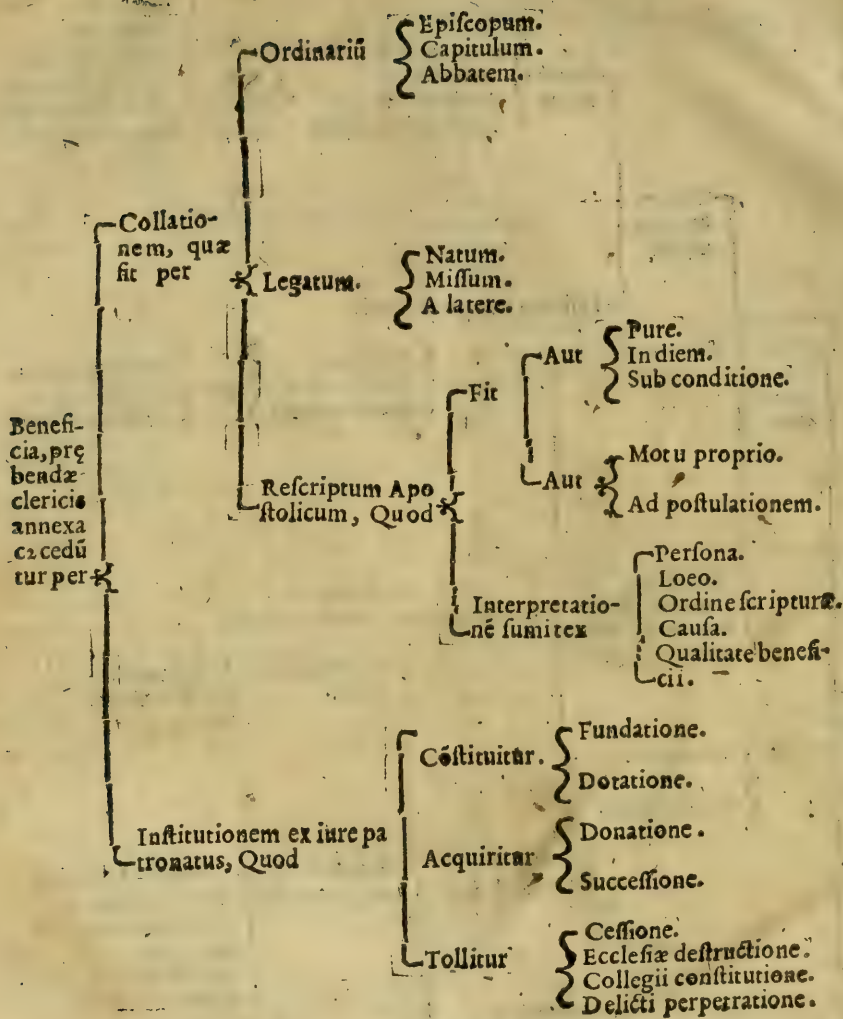 Benefi-
cia, prę
bendæ
clericis
annexa
cōcedū
tur per
Collatio-
nem, quæ
fit per
Ordinariū
Epiſcopum.
Capitulum.
Abbatem.
Legatum.
Natum.
Miſſum.
A latere.
Reſcriptum Apo
ſtolicum, Quod
Fit
Aut
Pure.
In diem.
Sub conditione.
Aut
Motu proprio.
Ad poſtulationem.
Interpretatio-
nē ſumit ex
Perſona.
Loco.
Ordine ſcripturæ.
Cauſa.
Qualitate benefi-
cii.
Inſtitutionem ex iure pa
tronatus, Quod
Cōſtituitur.
Fundatione.
Dotatione.
Acquiritur
Donatione.
Succeſſione.
Tollitur
Ceſſione.
Eccleſiæ deſtructione.
Collegii conſtitutione.
Delicti perpetratione.